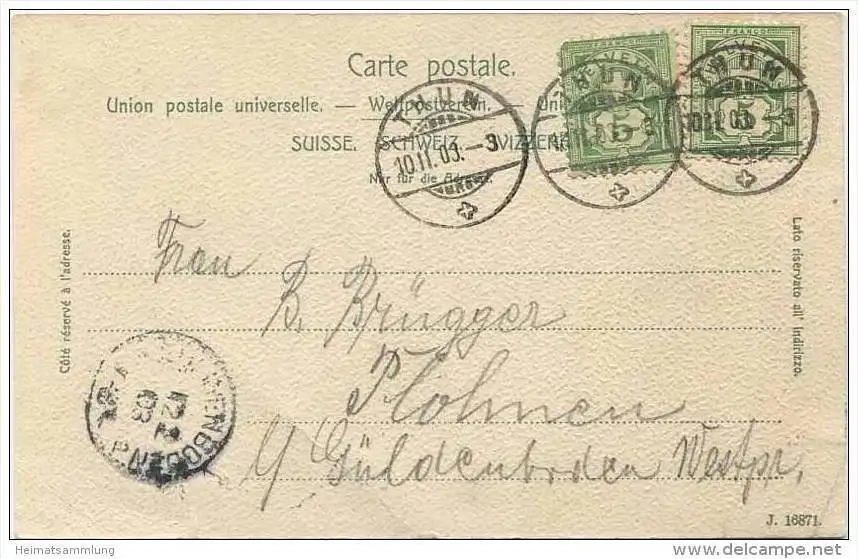 Carte postale.
Union postale universelle. — Weltpostverein. —
SUISSE. SCHWEIZ.
Nur für die Adresse.
FRANCO
FRANCO
HELVETIA
5
5
THUN
10.II.03.–3
THUN
THUN
10.II.03.–3
Côté réservé à l'adresse.
Lato riservato all' Indirizzo.
Frau
B. Brügger
Plohnen
Güldenboden Westpr.
12 2
03
J. 16871.
Heimatsammlung
delcampe.net